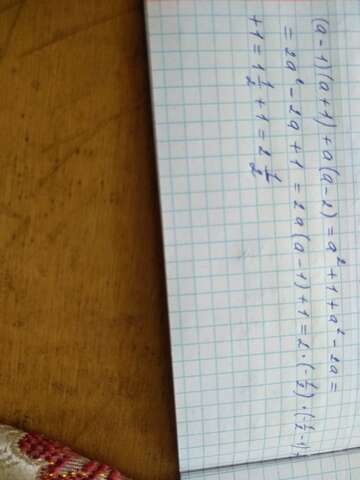 (a-1)(a+1)+a(a-2)=a²+1+a²-2a=
=2a²-2a+1=2a(a-1)+1=2·(-1/2)·(-1/2-1)+
+1=1 1/2+1=2 1/2